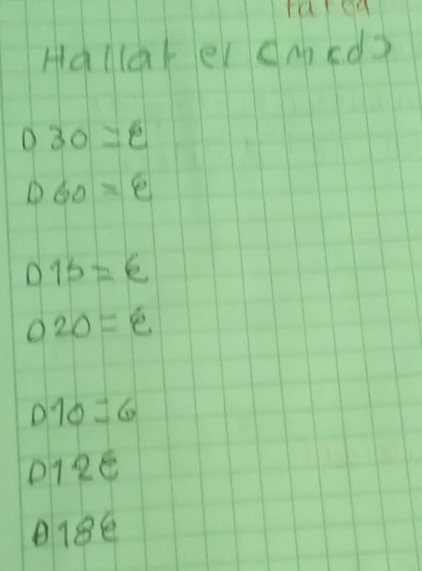 tarea
Hallar el (mcd)
D 30 = €
D 60 = €
D 15 = €
D 20 = €
D 10 = 6
D 12 €
D 18 €